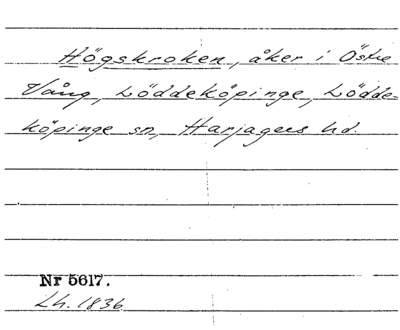 Högskroken, åker i Östre
Vång, Löddeköpinge, Lödde-
köpinge sn, Harjagers hd.
Nr 5617.
Lh. 1836